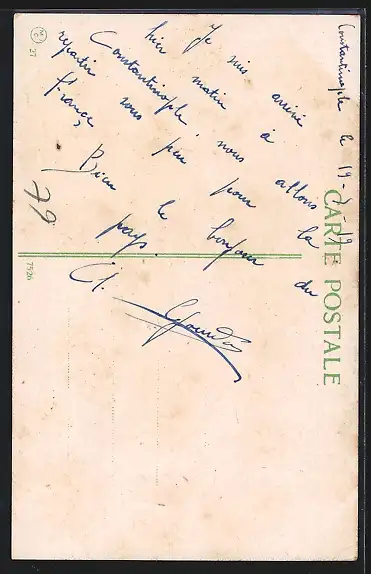 Constantinople le 19-
Je suis arrivé
hier matin à
Constantinople, nous allons
repartir sous peu pour la
France,
Bien le bonjour du
pays.
Cl.
79
CARTE POSTALE
7526
27